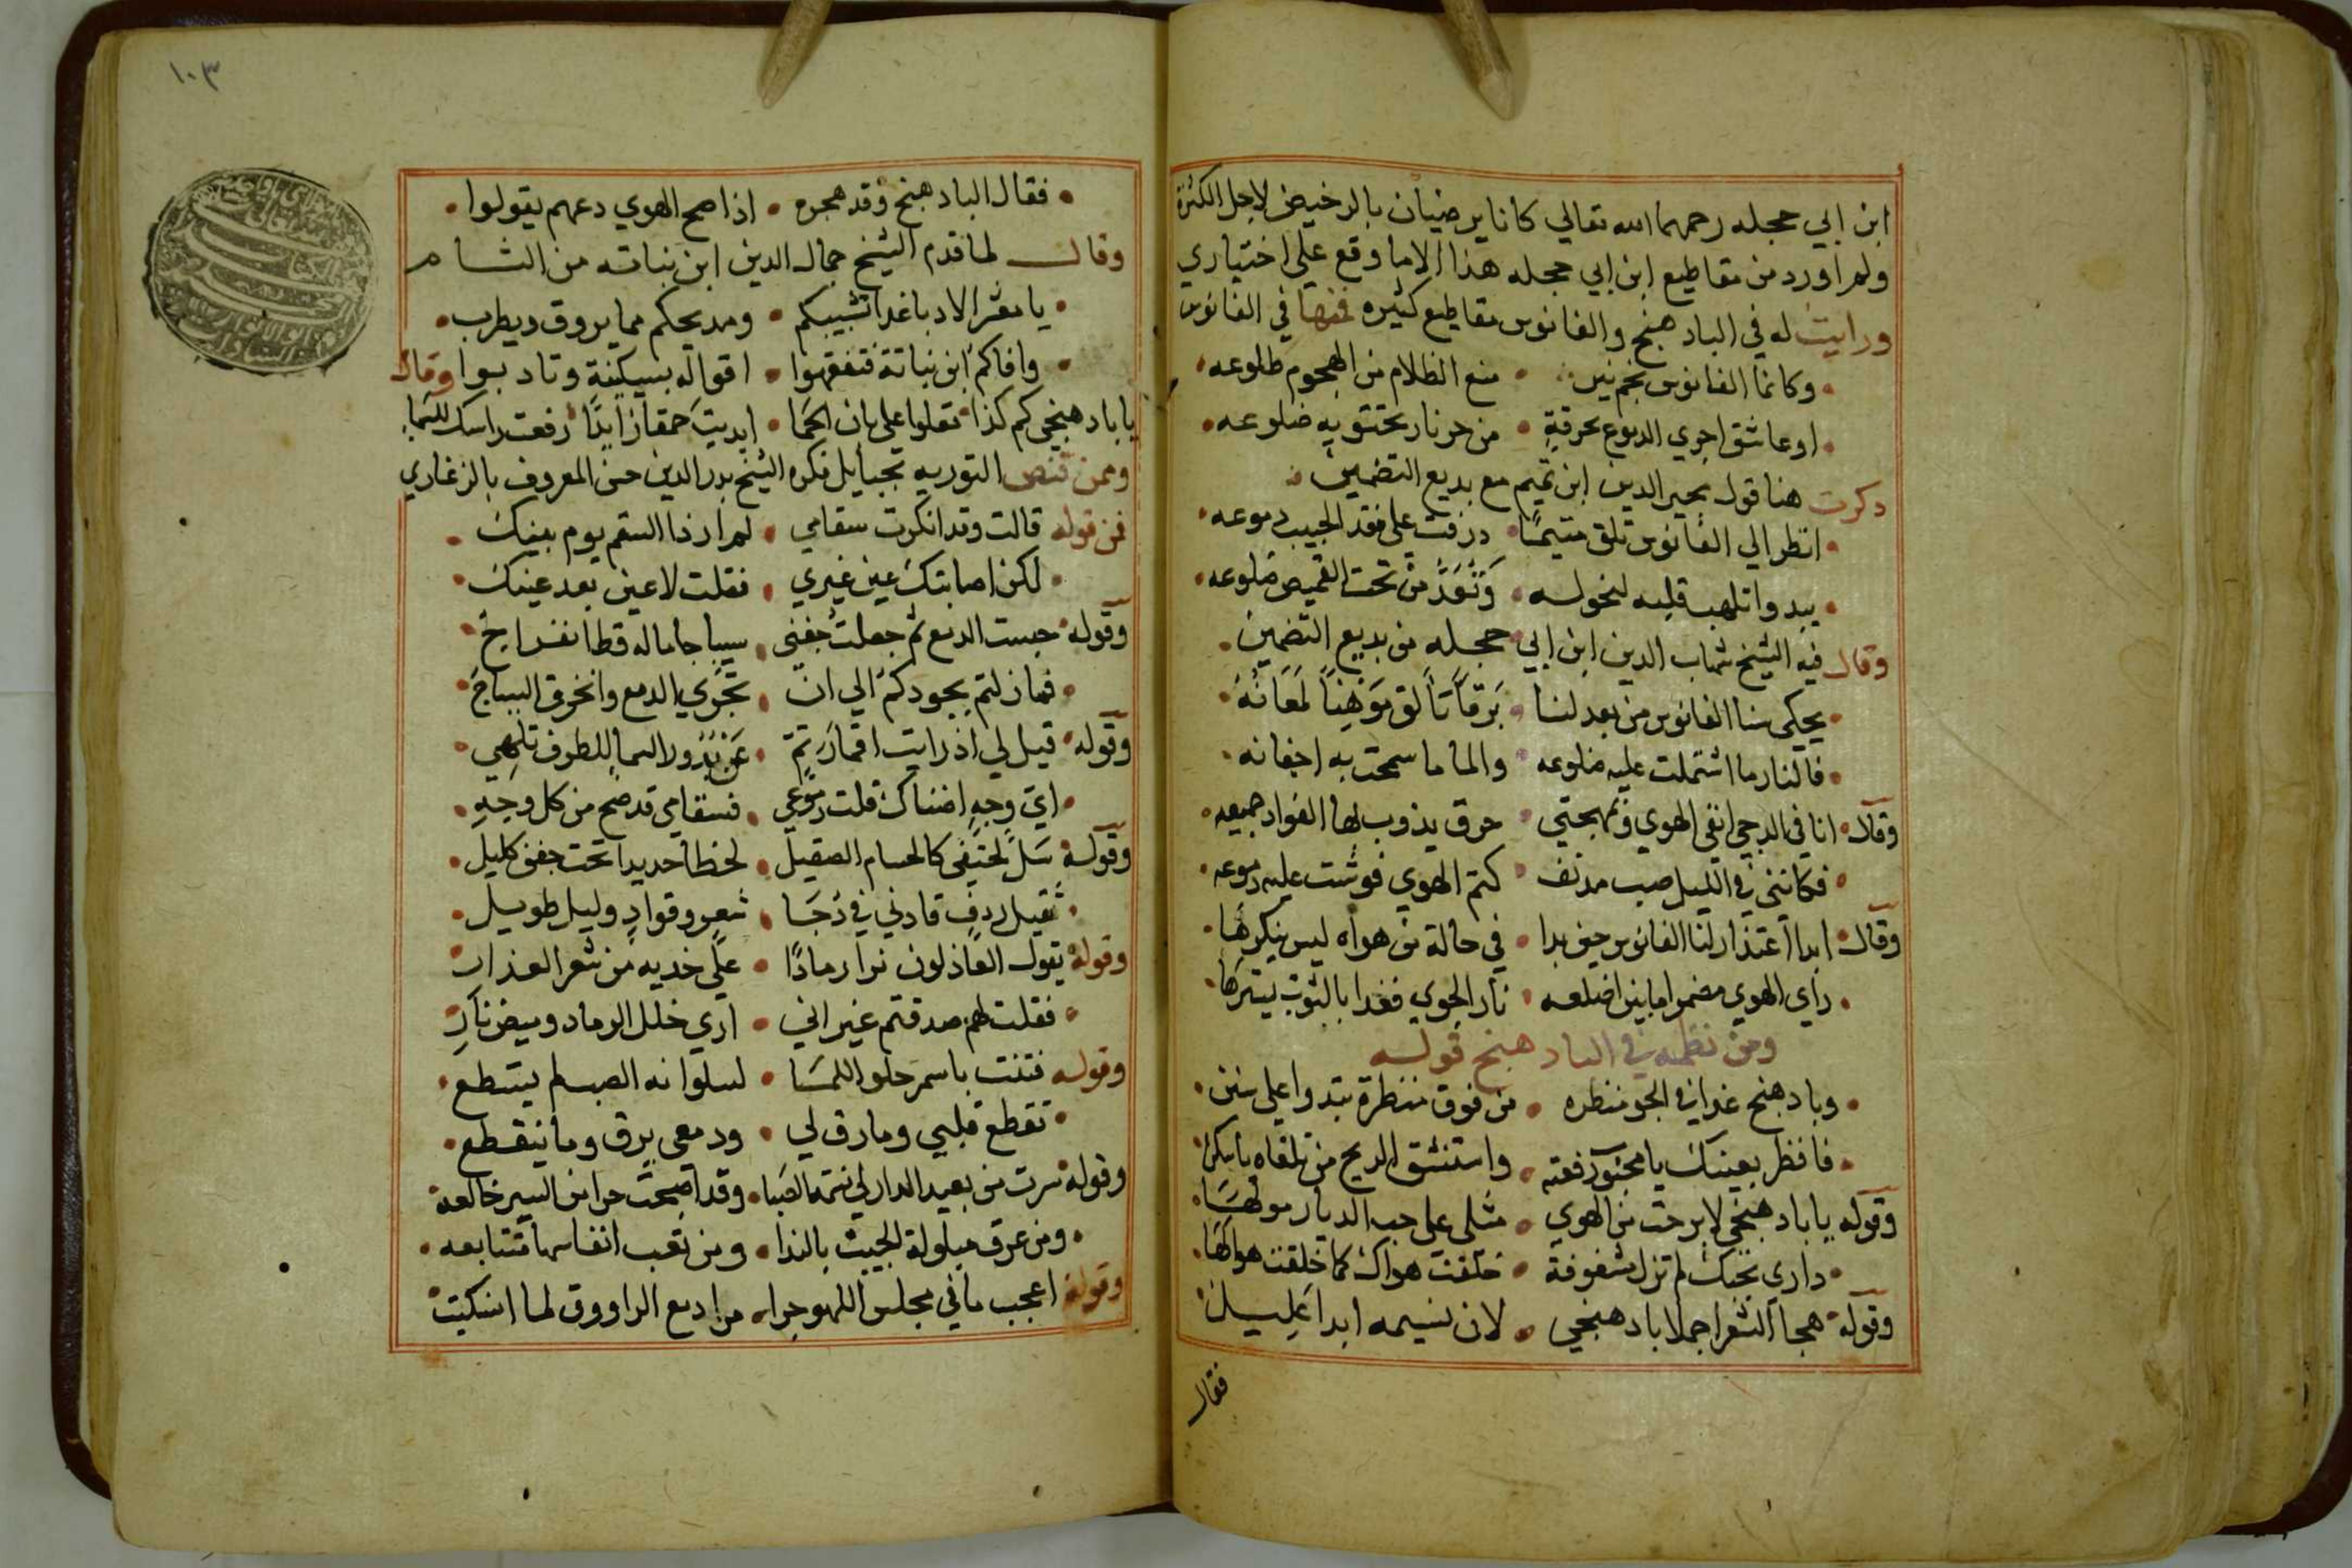 ابن ابي حجله رحمهما الله تعالي كانا يرضيان بالرخيص لاجل الكثرة
ولم اورد من مقاطيع ابن ابي حجله هذا الا ما وقع علي اختياري
ورايت له في الباد هنج والفانوس مقاطيع كثيره فمنها في الفانوس
وكانما الفانوس نجم نير • منع الظلام من الهجوم طلوعه
او عاشق اجري الدموع بحرقةٍ • من حر نار تحتويه ضلوعه
ذكرت هنا قول مجير الدين ابن تميم مع بديع التضمين
انظر الي الفانوس تلق متيمًا • ذرفت علي فقد الحبيب دموعه
يبدوا تلهب قلبه لنحوله • وَتُعَدُّ من تحت القميص ضلوعه
وقال فيه الشيخ شهاب الدين ابن ابي حجله من بديع التضمين
يحكي سنا الفانوس من بعد لنا • بَرَقاً تألق مَوْهِناً لمَعَانُهُ
فالنار ما اشتملت عليه ضلوعه • والما ما سمحت به اجفانه
وقال انا في الدجي انقي الهوي وبمهجتي • حرق يذوب لها الفواد جميعه
فكانني في الليل صب مدنف • كتم الهوي فوشت عليه دموعه
وقال ابدا اعتذار لنا الفانوس حين بدا • في حالة من هواه ليس ينكرها
راي الهوي مضمرا ما بين اضلعه • نار الجوي فغدا بالثوب يسترها
ومن نظمه في الباد هنج قوله
وباد هنج غدا في الجو منظره • من فوق منظرة تبدوا علي سنن
فانظر بعينك يا رفعته • واستنشق الريح من تلقاه يا سكن
وقوله يا باد هنجي لا برحت من الهوي • مثلي علي حب الديار مولهَا
داري بحبك لم تزل مشغوفة • خلقت هواك كما خلقت هوا لها
وقوله هجا الشعرا جهلا باد هنجي • لان نسيمه ابدا عليل
فقال
١٠٣
فقال الباد هنج وقد هجره • اذا صح الهوي دعهم يقولوا
وقال لما قدم الشيخ جمال الدين ابن نباته من الشام
يا معشر الادبا غدا تشبيبكم • ومديحكم مما يروق ويطرب
وافاكم ابن نباتة فتفقهوا • اقواله بسكينة وتادبوا وقال
يا باد هنجي كم كذا تعلوا علي بان الحما • ابديت حمقا زايدًا رفعت راسك للسما
وممن قنص التوريه بحبايل فكره الشيخ بدر الدين حسن المعروف بالزغاري
فمن قوله قالت وقد انكرت سقامي • لم ار ذا السقم يوم بينك
لكن اصابتك عين غيري • فقلت لا عين بعد عينك
وقوله حبست الدمع ثم جعلت جفني • سياجا ماله قط انفراج
فما زلتم بجودكم الي ان • تجري الدمع وانخرق السياج
وقوله قيل لي اذ رايت اقمار تمّ • عن بدور السما للطرف تلهي
ايّ وجهٍ اضناك قلت دعوني • فسقامي قد صح من كل وجهِ
وقوله سَلّ لحتفي كالحسام الصقيل • لحظا حديدا تحت جفن كليل
ثقيل ردف قادني في دجَا • شعر وقواد وليل طويل
وقوله يقول العاذلون نرا رمادًا • علي خديه من شعر العذار
فقلت لهم صدقتم غير اني • اري خلل الرماد وميض نارِ
وقوله فتنت باسمر حلو اللمَا • لسلوانه الصب لم يستطع
تقطع قلبي وما رق لي • ودمعي يرق وما ينقطع
وقوله سرت من بعيد الدار لي نسمة الصَبا • وقد اصبحت حرا من السير ضالعة
ومن عرق مبلولة الجيب بالندا • ومن تعب انفاسها متتابعه
وقوله اعجب ما في مجلس اللهو جرا • من ادمع الراووق لما انسكبت